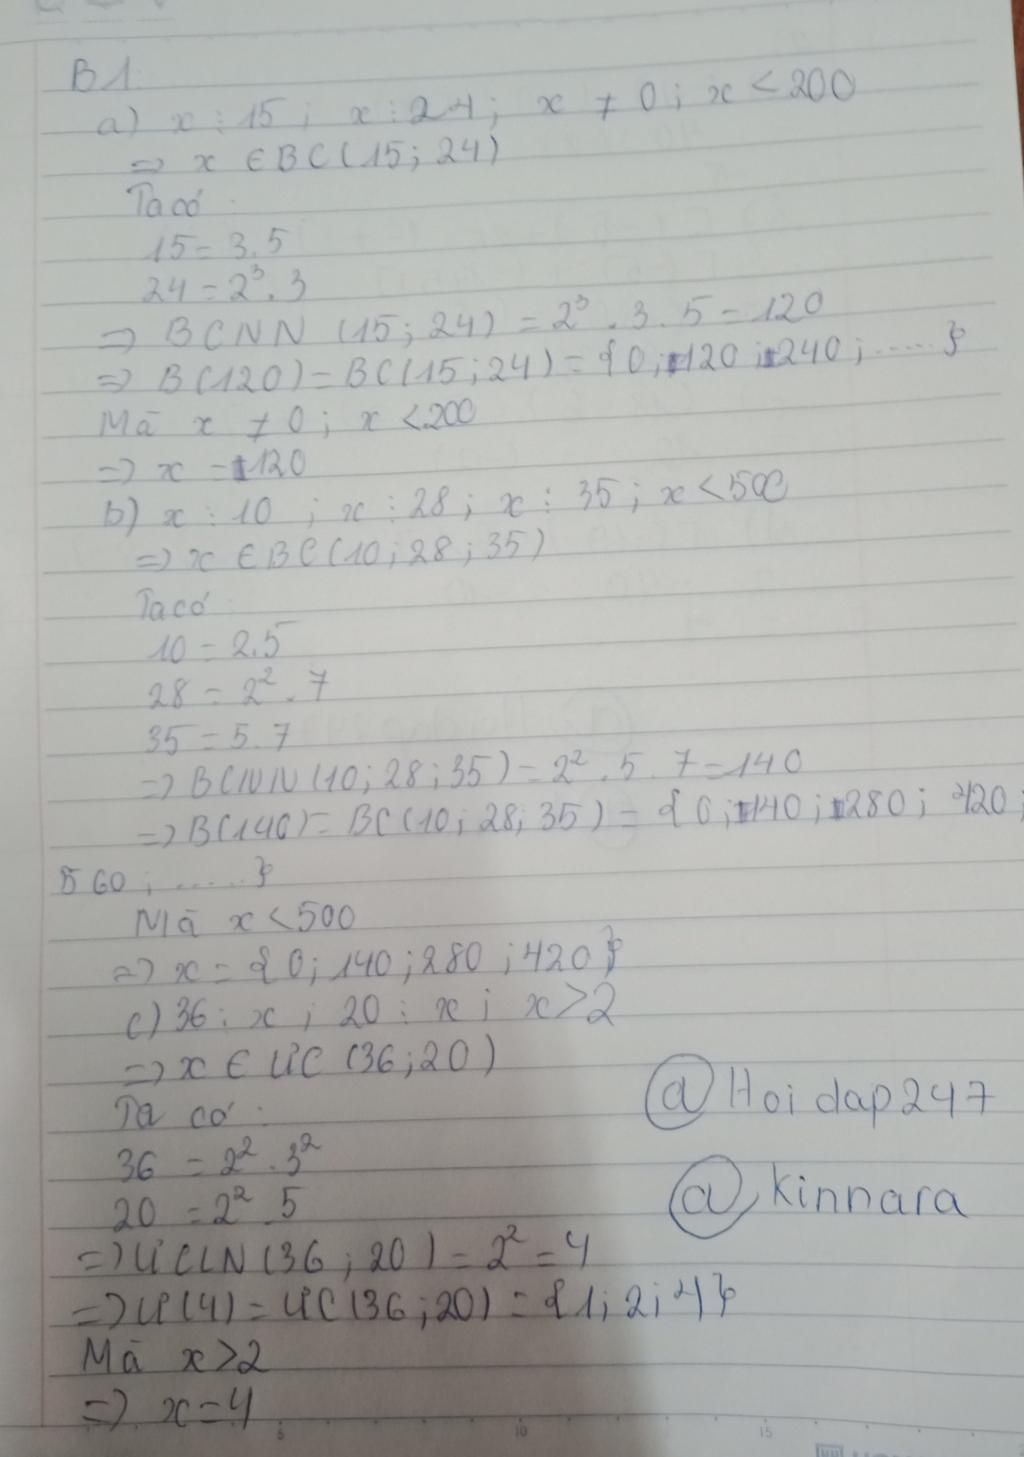 B1
a) x ⋮ 15 ; x ⋮ 24 ; x ≠ 0 ; x < 200
=> x ∈ BC(15 ; 24)
Ta có :
15 = 3.5
24 = 2³ . 3
=> BCNN (15 ; 24) = 2³ . 3 . 5 = 120
=> B(120) = BC(15 ; 24) = {0 ; 120 ; 240 ; .....}
Mà x ≠ 0 ; x < 200
=> x = 120
b) x ⋮ 10 ; x ⋮ 28 ; x ⋮ 35 ; x < 500
=> x ∈ BC(10 ; 28 ; 35)
Ta có :
10 = 2.5
28 = 2² . 7
35 = 5.7
=> BCNN(10 ; 28 ; 35) = 2² . 5 . 7 = 140
=> B(140) = BC(10 ; 28 ; 35) = {0 ; 140 ; 280 ; 420 ;
560 ; .....}
Mà x < 500
=> x = {0 ; 140 ; 280 ; 420}
c) 36 ⋮ x ; 20 ⋮ x ; x > 2
=> x ∈ ƯC (36 ; 20)
Ta có :
36 = 2² . 3²
20 = 2² . 5
=> ƯCLN (36 ; 20) = 2² = 4
=> Ư(4) = ƯC(36 ; 20) = {1 ; 2 ; 4}
Mà x > 2
=> x = 4
@Hoidap247
@kinnara
5 10 15